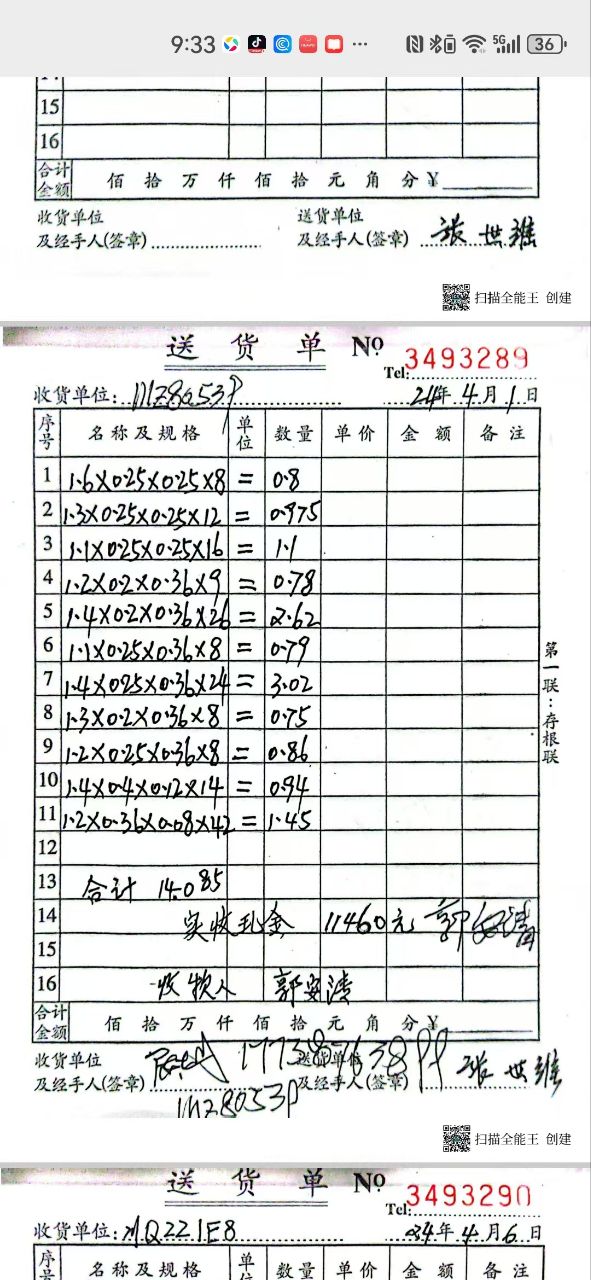 9:33 ... 5G 36
15
16
合计金额 佰 拾 万 仟 佰 拾 元 角 分 ¥
收货单位 送货单位
及经手人(签章) 及经手人(签章) 张世雄
扫描全能王 创建
送 货 单 No 3493289
Tel:
收货单位: 24年4月1日
序号 名称及规格 单位 数量 单价 金额 备注
1 1.6×0.25×0.25×8 = 0.8
2 1.3×0.25×0.25×12 = 0.975
3 1.1×0.25×0.25×16 = 1.1
4 1.2×0.2×0.36×9 = 0.78
5 1.4×0.2×0.36×26 = 2.62
6 1.1×0.25×0.36×8 = 0.79
7 1.4×0.25×0.36×24 = 3.02
8 1.3×0.2×0.36×8 = 0.75
9 1.2×0.25×0.36×8 = 0.86
10 1.4×0.4×0.12×14 = 0.94
11 1.2×0.36×0.08×42 = 1.45
12
13 合计 14.085
14 实收现金 11460元
15
16 收物人
第一联:存根联
合计金额 佰 拾 万 仟 佰 拾 元 角 分 ¥
收货单位 送货单位
及经手人(签章) 及经手人(签章) 张世雄
扫描全能王 创建
送 货 单 No 3493290
Tel:
收货单位: 24年4月6日
序号 名称及规格 单位 数量 单价 金额 备注